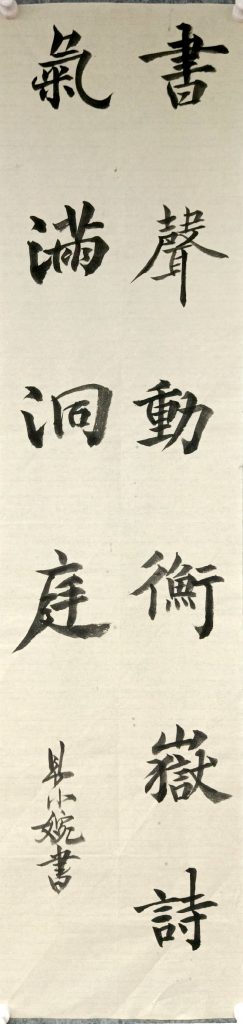 書聲動衡嶽詩
氣滿洞庭
小婉書